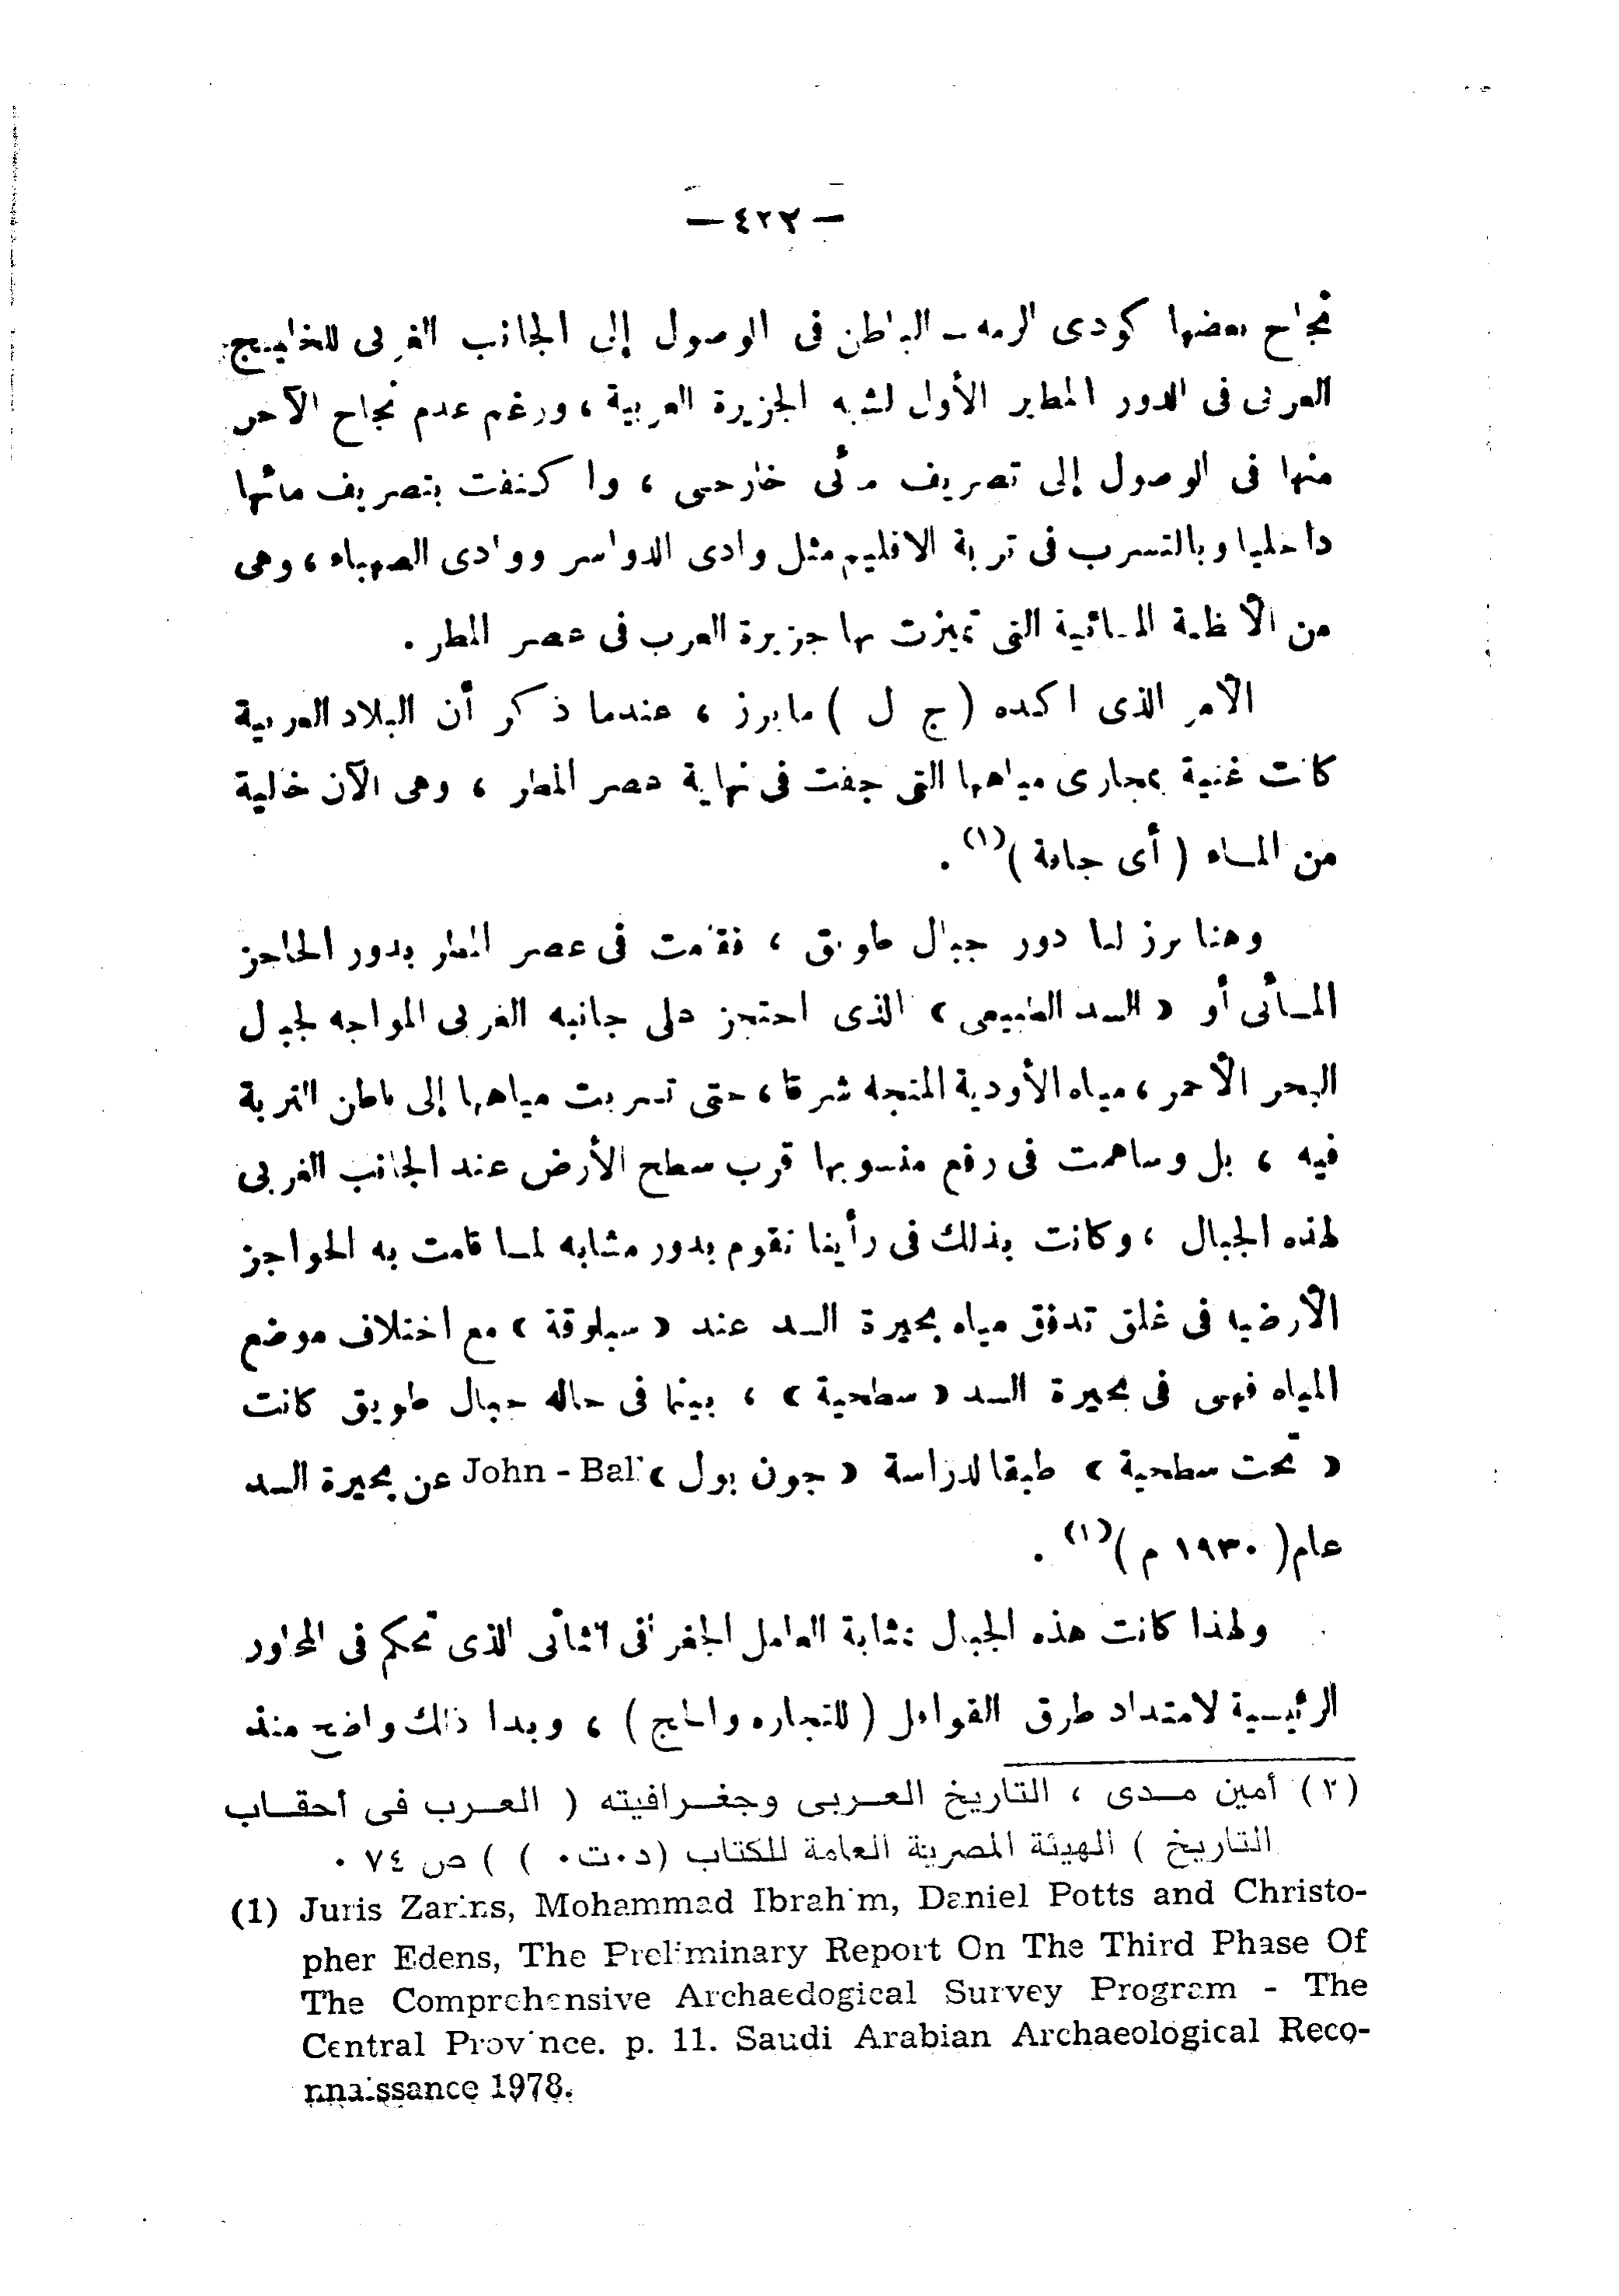 — ٤٢٢ —
نجاح بعضها كودى الرمه ــ الباطن فى الوصول إلى الجانب الغربى للخليج
العربى فى الدور المطير الأول لشبه الجزيرة العربية ، ورغم عدم نجاح الآخر
منها فى الوصول إلى تصريف مائى خارجى ، واكتفت بتصريف مائها
داخليا وبالتسرب فى تربة الاقليم مثل وادى الدواسر ووادى الصهباء ، وهى
من الأنظمة المائية التى تميزت بها جزيرة العرب فى عصر المطر .
الأمر الذى اكده ( ج ل ) مايرز ، عندما ذكر أن البلاد العربية
كانت غنية بمجارى مياهها التى جفت فى نهاية عصر المطر ، وهى الآن خالية
من المـاء ( أى جافة )(١) .
وهنا برز لنا دور جبال طويق ، فقامت فى عصر المطر بدور الحاجز
المـائى أو « السـد الطبيعى » الذى احتجز على جانبه الغربى المواجه لجبال
البحر الأحمر ، مياه الأودية المتجه شرقا ، حتى تسربت مياهها إلى باطن التربة
فيه ، بل وساهمت فى رفع منسوبها قرب سطح الأرض عند الجانب الغربى
لهذه الجبال ، وكانت بذلك فى رأينا تقوم بدور مشابه لمـا قامت به الحواجز
الأرضيا فى غلق تدفق مياه بحيرة السـد عند « سيلوقة » مع اختلاف موضع
المياه فهى فى بحيرة السـد « سطحية » ، بينما فى حاله جبال طويق كانت
« تحت سطحية » طبقا لدراسة « جون بول » John - Ball عن بحيرة السـد
عام ( ١٩٣٠ م )(١) .
ولهذا كانت هذه الجبال بمثابة العامل الجغرافى الثانى الذى تحكم فى المحاور
الرئيسية لامتداد طرق القوافل ( للتجاره والحاج ) ، وبدا ذلك واضح منذ
(٢) أمين مـدى ، التاريخ العـربى وجغـرافيته ( العـرب فى أحقـاب
التاريخ ) الهيئة المصرية العامة للكتاب (د٠ت٠ ) ) ص ٧٤ ٠
(1) Juris Zarins, Mohammad Ibrahim, Daniel Potts and Christo-
pher Edens, The Preliminary Report On The Third Phase Of
The Comprehensive Archaedogical Survey Program - The
Central Province. p. 11. Saudi Arabian Archaeological Reco-
nnaissance 1978.